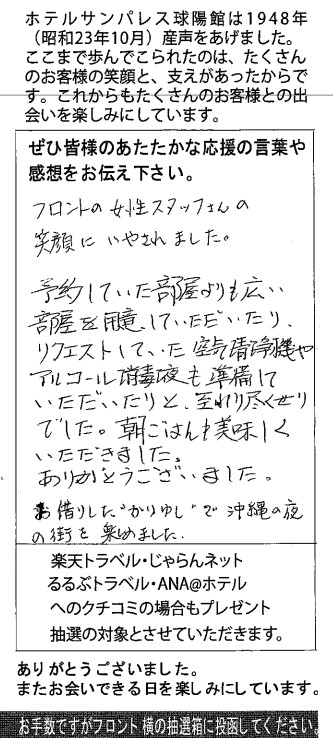 ホテルサンパレス球陽館は1948年
（昭和23年10月）産声をあげました。
ここまで歩んでこられたのは、たくさん
のお客様の笑顔と、支えがあったからで
す。これからもたくさんのお客様との出
会いを楽しみにしています。
ぜひ皆様のあたたかな応援の言葉や
感想をお伝え下さい。
フロントの女性スタッフさんの
笑顔にいやされました。
予約していた部屋よりも広い
部屋を用意していただいたり、
リクエストしていた空気清浄機や
アルコール消毒液も準備して
いただいたりと、至れり尽くせり
でした。朝ごはんも美味しく
いただきました。
ありがとうございました。
お借りした"かりゆし"で沖縄の夜
の街を楽めました。
楽天トラベル・じゃらんネット
るるぶトラベル・ANA@ホテル
へのクチコミの場合もプレゼント
抽選の対象とさせていただきます。
ありがとうございました。
またお会いできる日を楽しみにしています。
お手数ですがフロント横の抽選箱に投函してください。